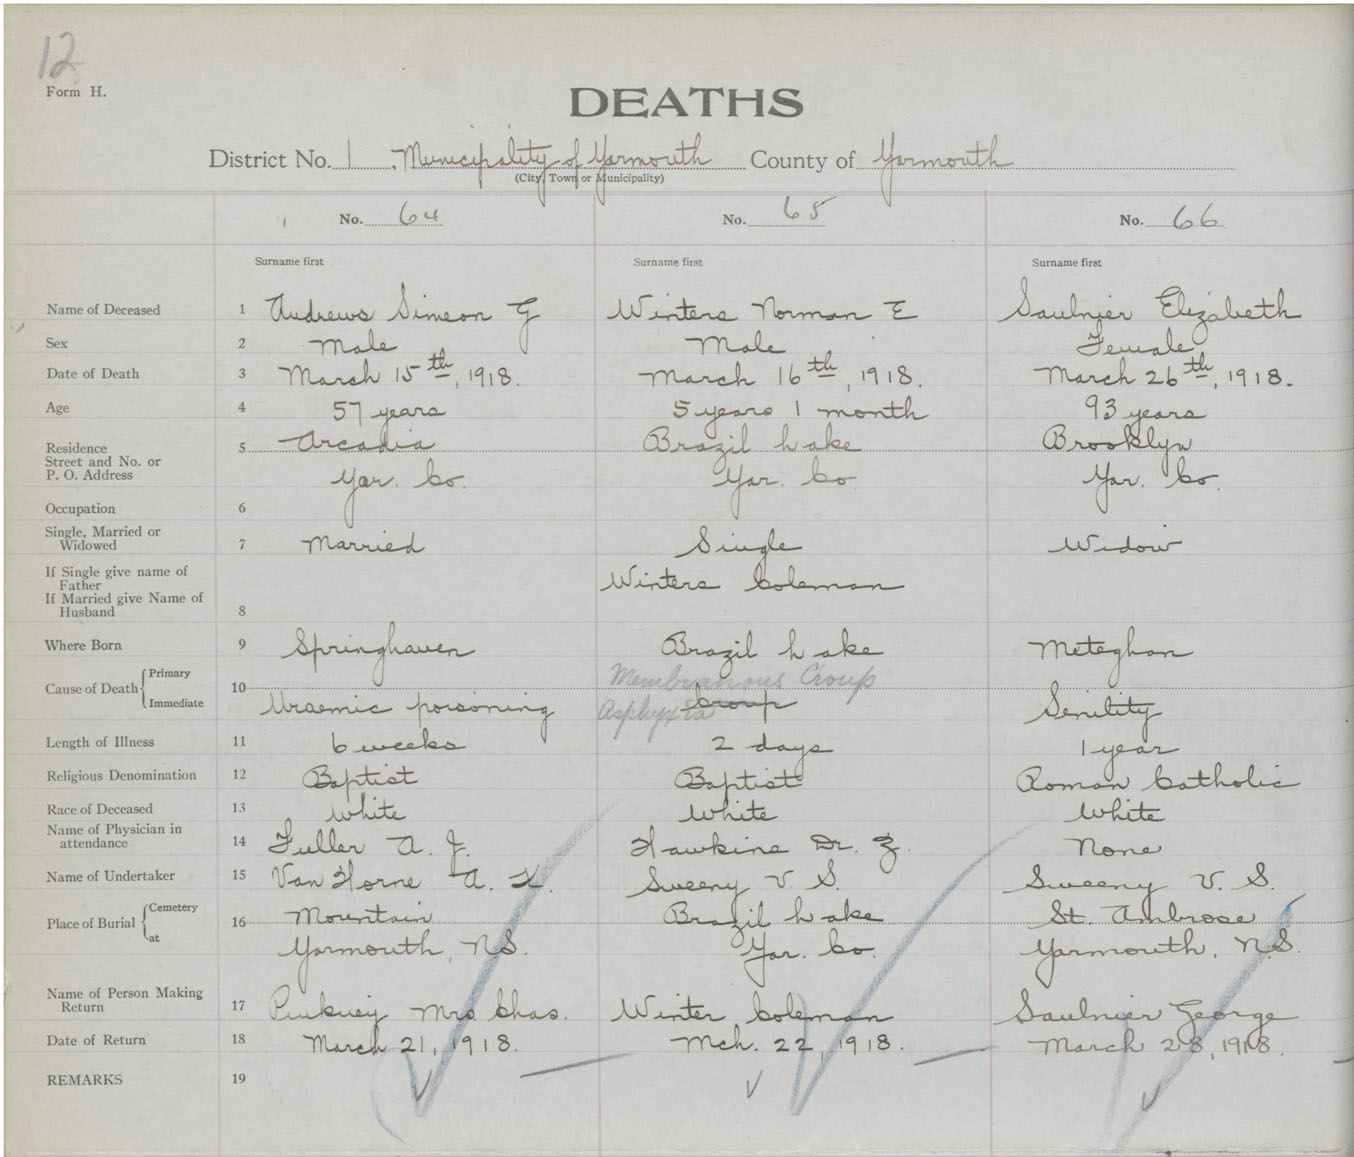 12
Form H.
DEATHS
District No. 1, Municipality of Yarmouth County of Yarmouth
(City, Town or Municipality)
No. 64 No. 65 No. 66
Surname first Surname first Surname first
Name of Deceased 1 Andrews Simeon G Winters Norman E Saulnier Elizabeth
Sex 2 Male Male Female
Date of Death 3 March 15th, 1918. March 16th, 1918. March 26th, 1918.
Age 4 57 years 5 years 1 month 93 years
Residence 5 Arcadia Brazil Lake Brooklyn
Street and No. or
P. O. Address Yar. Co. Yar. Co. Yar. Co.
Occupation 6
Single, Married or
Widowed 7 Married Single Widow
If Single give name of
Father Winters Coleman
If Married give Name of
Husband 8
Where Born 9 Springhaven Brazil Lake Meteghan
Cause of Death { Primary 10 Membranous Croup
Immediate Uraemic poisoning Asphyxia Croup Senility
Length of Illness 11 6 weeks 2 days 1 year
Religious Denomination 12 Baptist Baptist Roman Catholic
Race of Deceased 13 White White White
Name of Physician in
attendance 14 Fuller A. J. Hawkins Dr. Z. None
Name of Undertaker 15 Van Horne A. K. Sweeny V. S. Sweeny V. S.
Place of Burial { Cemetery 16 Mountain Brazil Lake St. Ambrose
at Yarmouth, N.S. Yar. Co. Yarmouth, N.S.
Name of Person Making
Return 17 Pinkney Mrs. Chas. Winter Coleman Saulnier George
Date of Return 18 March 21, 1918. Mch. 22, 1918. March 28, 1918.
REMARKS 19